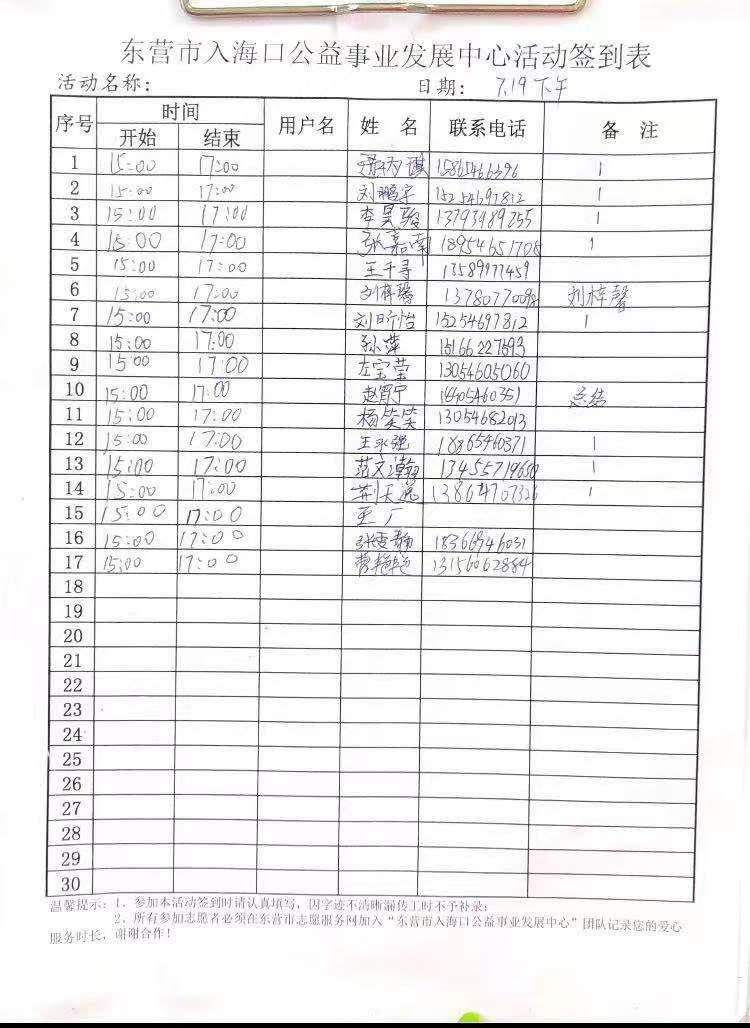 东营市入海口公益事业发展中心活动签到表
活动名称： 日期： 7.19下午
序号 时间 用户名 姓 名 联系电话 备 注
开始 结束
1 15:00 17:00 15865466396 1
2 15:00 17:00 刘鹏宇 15254697812 1
3 15:00 17:00 李昊骏 13793989255 1
4 15:00 17:00 张嘉南 18954651708 1
5 15:00 17:00 王千寻 13589977459
6 15:00 17:00 刘梓馨 13780770098 刘梓馨
7 15:00 17:00 刘昕怡 15254697812 1
8 15:00 17:00 孙萍 15166227593
9 15:00 17:00 左宝莹 13054605060
10 15:00 17:00 总结
11 15:00 17:00 杨笑笑 13054682013
12 15:00 17:00 王永强 18865460371 1
13 15:00 17:00 范文瀚 13455719650 1
14 15:00 17:00 13864707326 1
15 15:00 17:00
16 15:00 17:00 18366946031
17 15:00 17:00 曹艳艳 13156062884
18
19
20
21
22
23
24
25
26
27
28
29
30
温馨提示：1、参加本活动签到时请认真填写，因字迹不清晰漏传工时不予补录；
2、所有参加志愿者必须在东营市志愿服务网加入“东营市入海口公益事业发展中心”团队记录您的爱心
服务时长，谢谢合作！